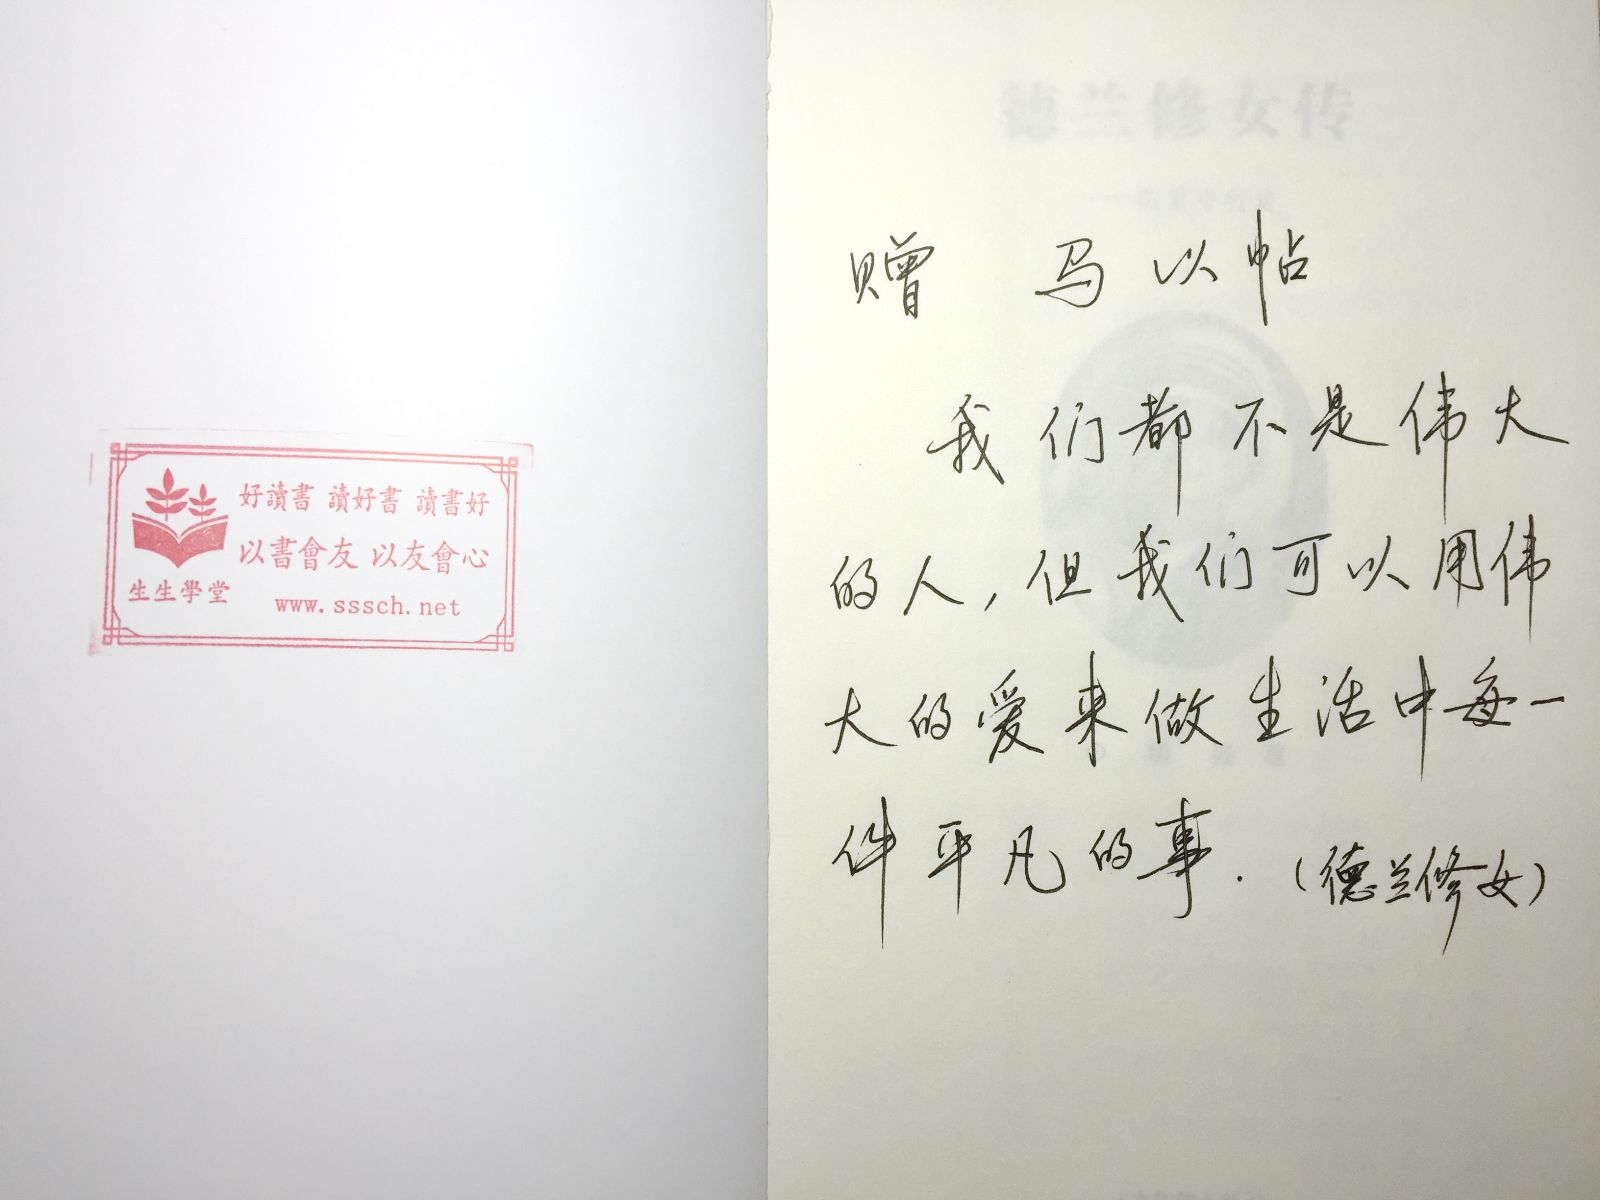 好讀書 讀好書 讀書好
以書會友 以友會心
生生學堂
www.sssch.net
德兰修女传
赠 马以帖
我们都不是伟大
的人，但我们可以用伟
大的爱来做生活中每一
件平凡的事.（德兰修女）